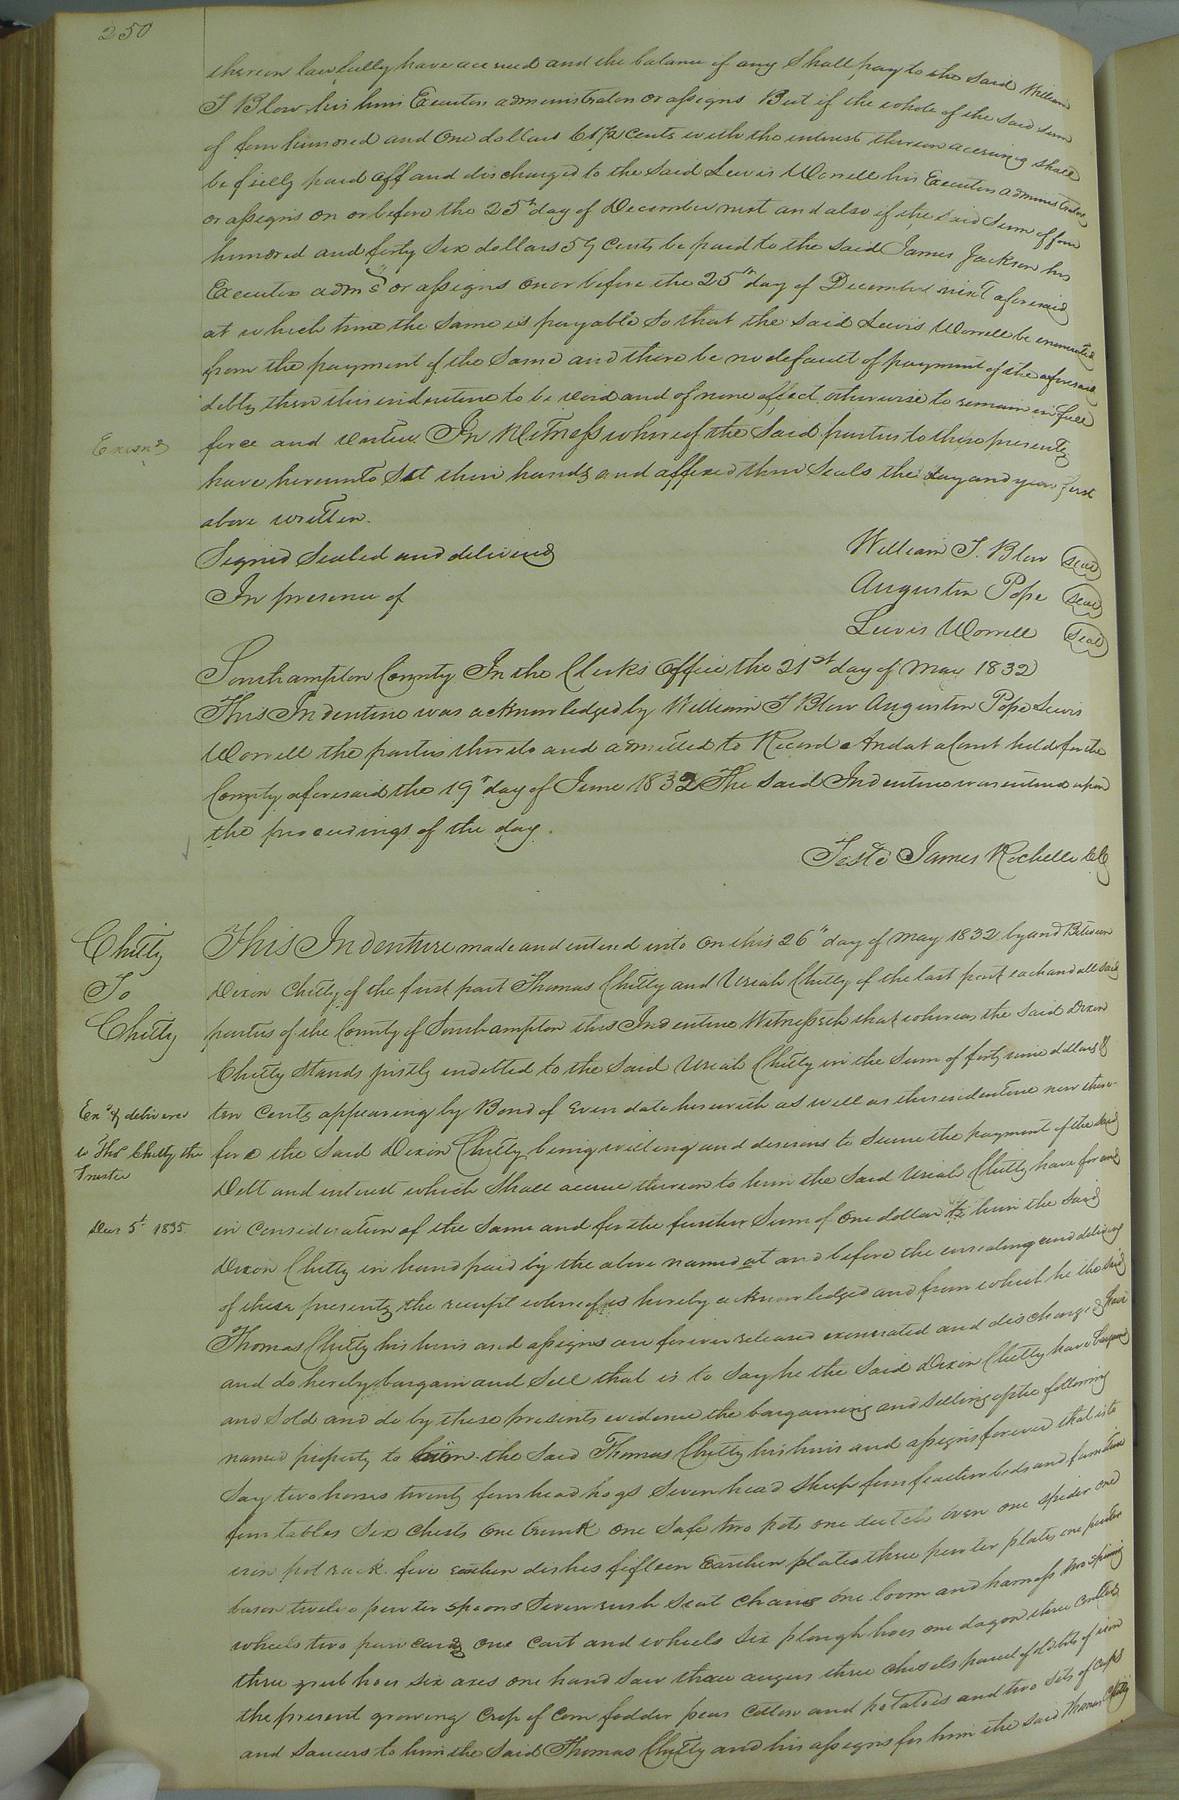 250
therein lawfully have accrued and the balance if any shall pay to the said William
T Blow his heirs Executors administrators or assigns But if the whole of the said sum
of four hundred and one dollars 61 1/2 cents with the interest thereon accruing shall
be fully paid off and discharged to the said Lewis Worrell his Executors administrators
or assigns on or before the 25th day of December next and also if the said Sum of four
hundred and forty Six dollars 59 Cents be paid to the said James Jackson his
Executors adms or assigns on or before the 25th day of December next aforesaid
at which time the same is payable So that the said Lewis Worrell be exonerated
from the payment of the same and there be no default of payment of the aforesaid
debts then this indenture to be void and of none effect otherwise to remain in full
Examd
force and virtue In Witness whereof the Said parties to these presents
have hereunto Set their hands and affixed their Seals the day and year first
above written.
Signed Sealed and delivered
In presence of
William T. Blow Seal
Augustin Pope Seal
Lewis Worrell Seal
Southampton County In the Clerks Office the 21st day of May 1832
This Indenture was acknowledged by William T Blow Augustin Pope Lewis
Worrell the parties thereto and admitted to Record And at a Court held for the
County aforesaid the 19th day of June 1832 The Said Indenture was entered upon
the proceedings of the day.
Teste James Rochelle CC
Chitty
To
Chitty
This Indenture made and entered into on this 26th day of May 1832 by and Between
Dixon Chitty of the first part Thomas Chitty and Uriah Chitty of the last part each and all said
parties of the County of Southampton this Indenture Witnesseth that whereas the Said Dixon
Chitty Stands justly indebted to the Said Uriah Chitty in the Sum of forty nine dollars &
Exd & delivered
to Thos Chitty the
Trustee
Decr 5th 1835
ten Cents appearing by Bond of even date herewith as well as this indenture now there-
fore the Said Dixon Chitty being willing and desirous to Secure the payment of the said
Debt and interest which Shall accrue thereon to him the Said Uriah Chitty have for and
in Consideration of the Same and for the further Sum of one dollar to him the Said
Dixon Chitty in hand paid by the above named at and before the ensealing and delivery
of these presents the receipt whereof is hereby acknowledged and from which he the said
Thomas Chitty his heirs and assigns are forever released exonerated and discharged have
and do hereby bargain and Sell that is to Say he the Said Dixon Chitty have bargained
and Sold and do by these presents evidence the bargaining and Selling of the following
named property to him the Said Thomas Chitty his heirs and assigns forever that is to
Say two horses twenty four head hogs Seven head Sheep four feather beds and furniture
four tables Six Chests One trunk One Safe two pots one dutch oven one Spider one
iron pot rack five earthen dishes fifteen Earthen plates three pewter plates one pewter
bason twelve pewter Spoons Seven rush Seat Chairs one loom and harness two spinning
wheels two pair cards one Cart and wheels Six plough hoes one dagon three
three grub hoes Six axes one hand Saw three augers three chisels parcel of old bits of iron
the present growing Crop of Corn fodder peas Cotton and potatoes and two Sets of Cups
and Saucers to him the Said Thomas Chitty and his assigns for him the said Thomas Chitty